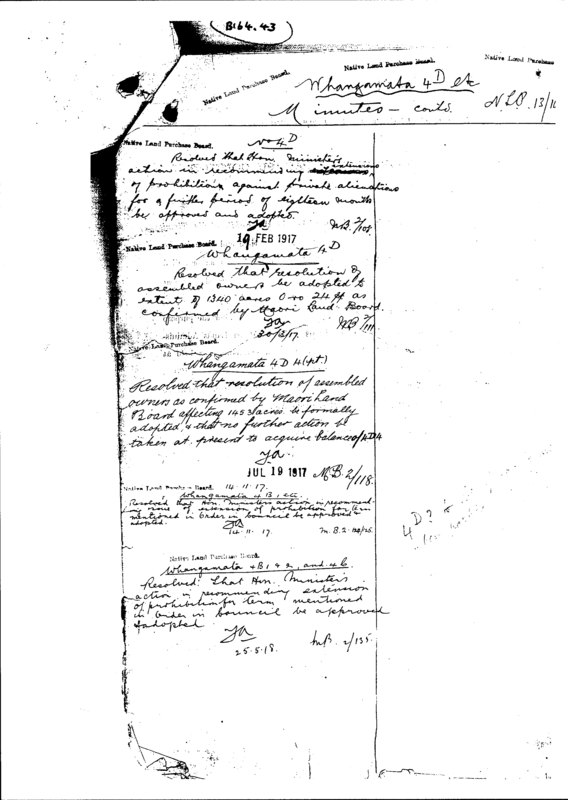 B164.43
Native Land Purchase Board.
Native Land Purchase Board.
Native Land Purchase
Whangamata 4D etc
Minutes – contd.
N.L.P. 13/1
Native Land Purchase Board.
No 4D
Resolved that Hon. Minister's
action in recommending extensions
of prohibitions against private alienations
for a further period of eighteen months
be approved and adopted.
M.B. 2/108.
19 FEB 1917
Native Land Purchase Board.
Whangamata 4D
Resolved that resolution of
assembled owners be adopted to
extent of 1340 acres 0 ro 24 p as
confirmed by Maori Land Board.
MB 2/111
30/3/17.
Native Land Purchase Board.
Whangamata 4D 4 (pt.)
Resolved that resolution of assembled
owners as confirmed by Maori Land
Board affecting 1453 acres be formally
adopted, & that no further action be
taken at present to acquire balance of 4D4
JUL 19 1917
M.B. 2/118.
Native Land Purchase Board. 14.11.17.
Whangamata 4B1, etc.
Resolved that Hon. Minister's action in recommend-
ing issue of extension of prohibition for term
mentioned in Order in Council be approved &
adopted.
14.11.17.
M.B. 2. 124/25.
Native Land Purchase Board.
Whangamata 4B1 & 2, and 4C
Resolved: That Hon. Minister's
action in recommending extension
of prohibition for term mentioned
in Order in Council be approved
& adopted
25.5.18.
M.B. 2/135.
4D?